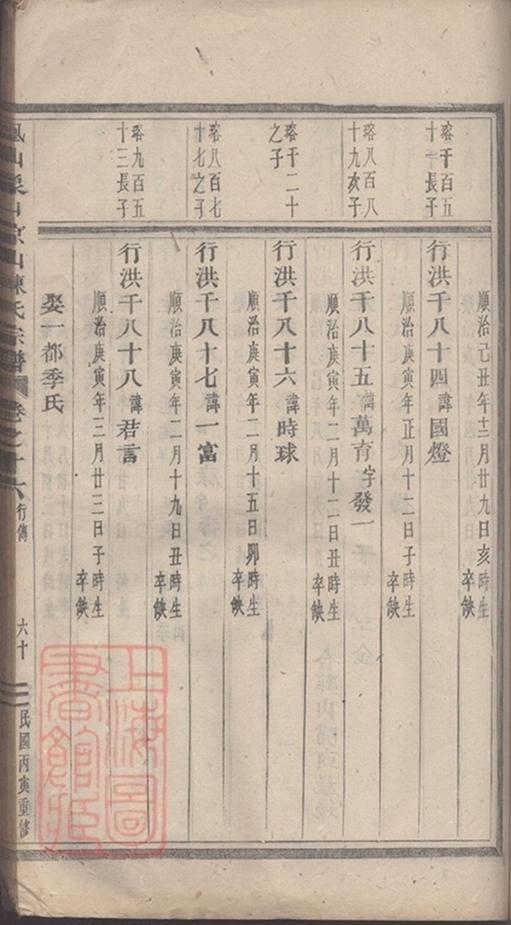 順治己丑年十二月廿九日亥時生
卒缺
瑢千百五
十十長子
行洪千八十四諱國燈
順治庚寅年正月十二日子時生
卒缺
瑢八百八
十九次子
行洪千八十五諱萬育字發一
順治庚寅年二月十二日丑時生
卒缺
瑢千二十
之子
行洪千八十六諱時球
順治庚寅年二月十五日卯時生
卒缺
瑢八百七
十七之子
行洪千八十七諱一富
順治庚寅年二月十九日丑時生
卒缺
瑢九百五
十三長子
行洪千八十八諱君言
順治庚寅年三月廿三日子時生
卒缺
娶一都季氏
山陳氏宗譜 卷之十六 行傳 六十 民國丙寅重修
上海圖書館藏